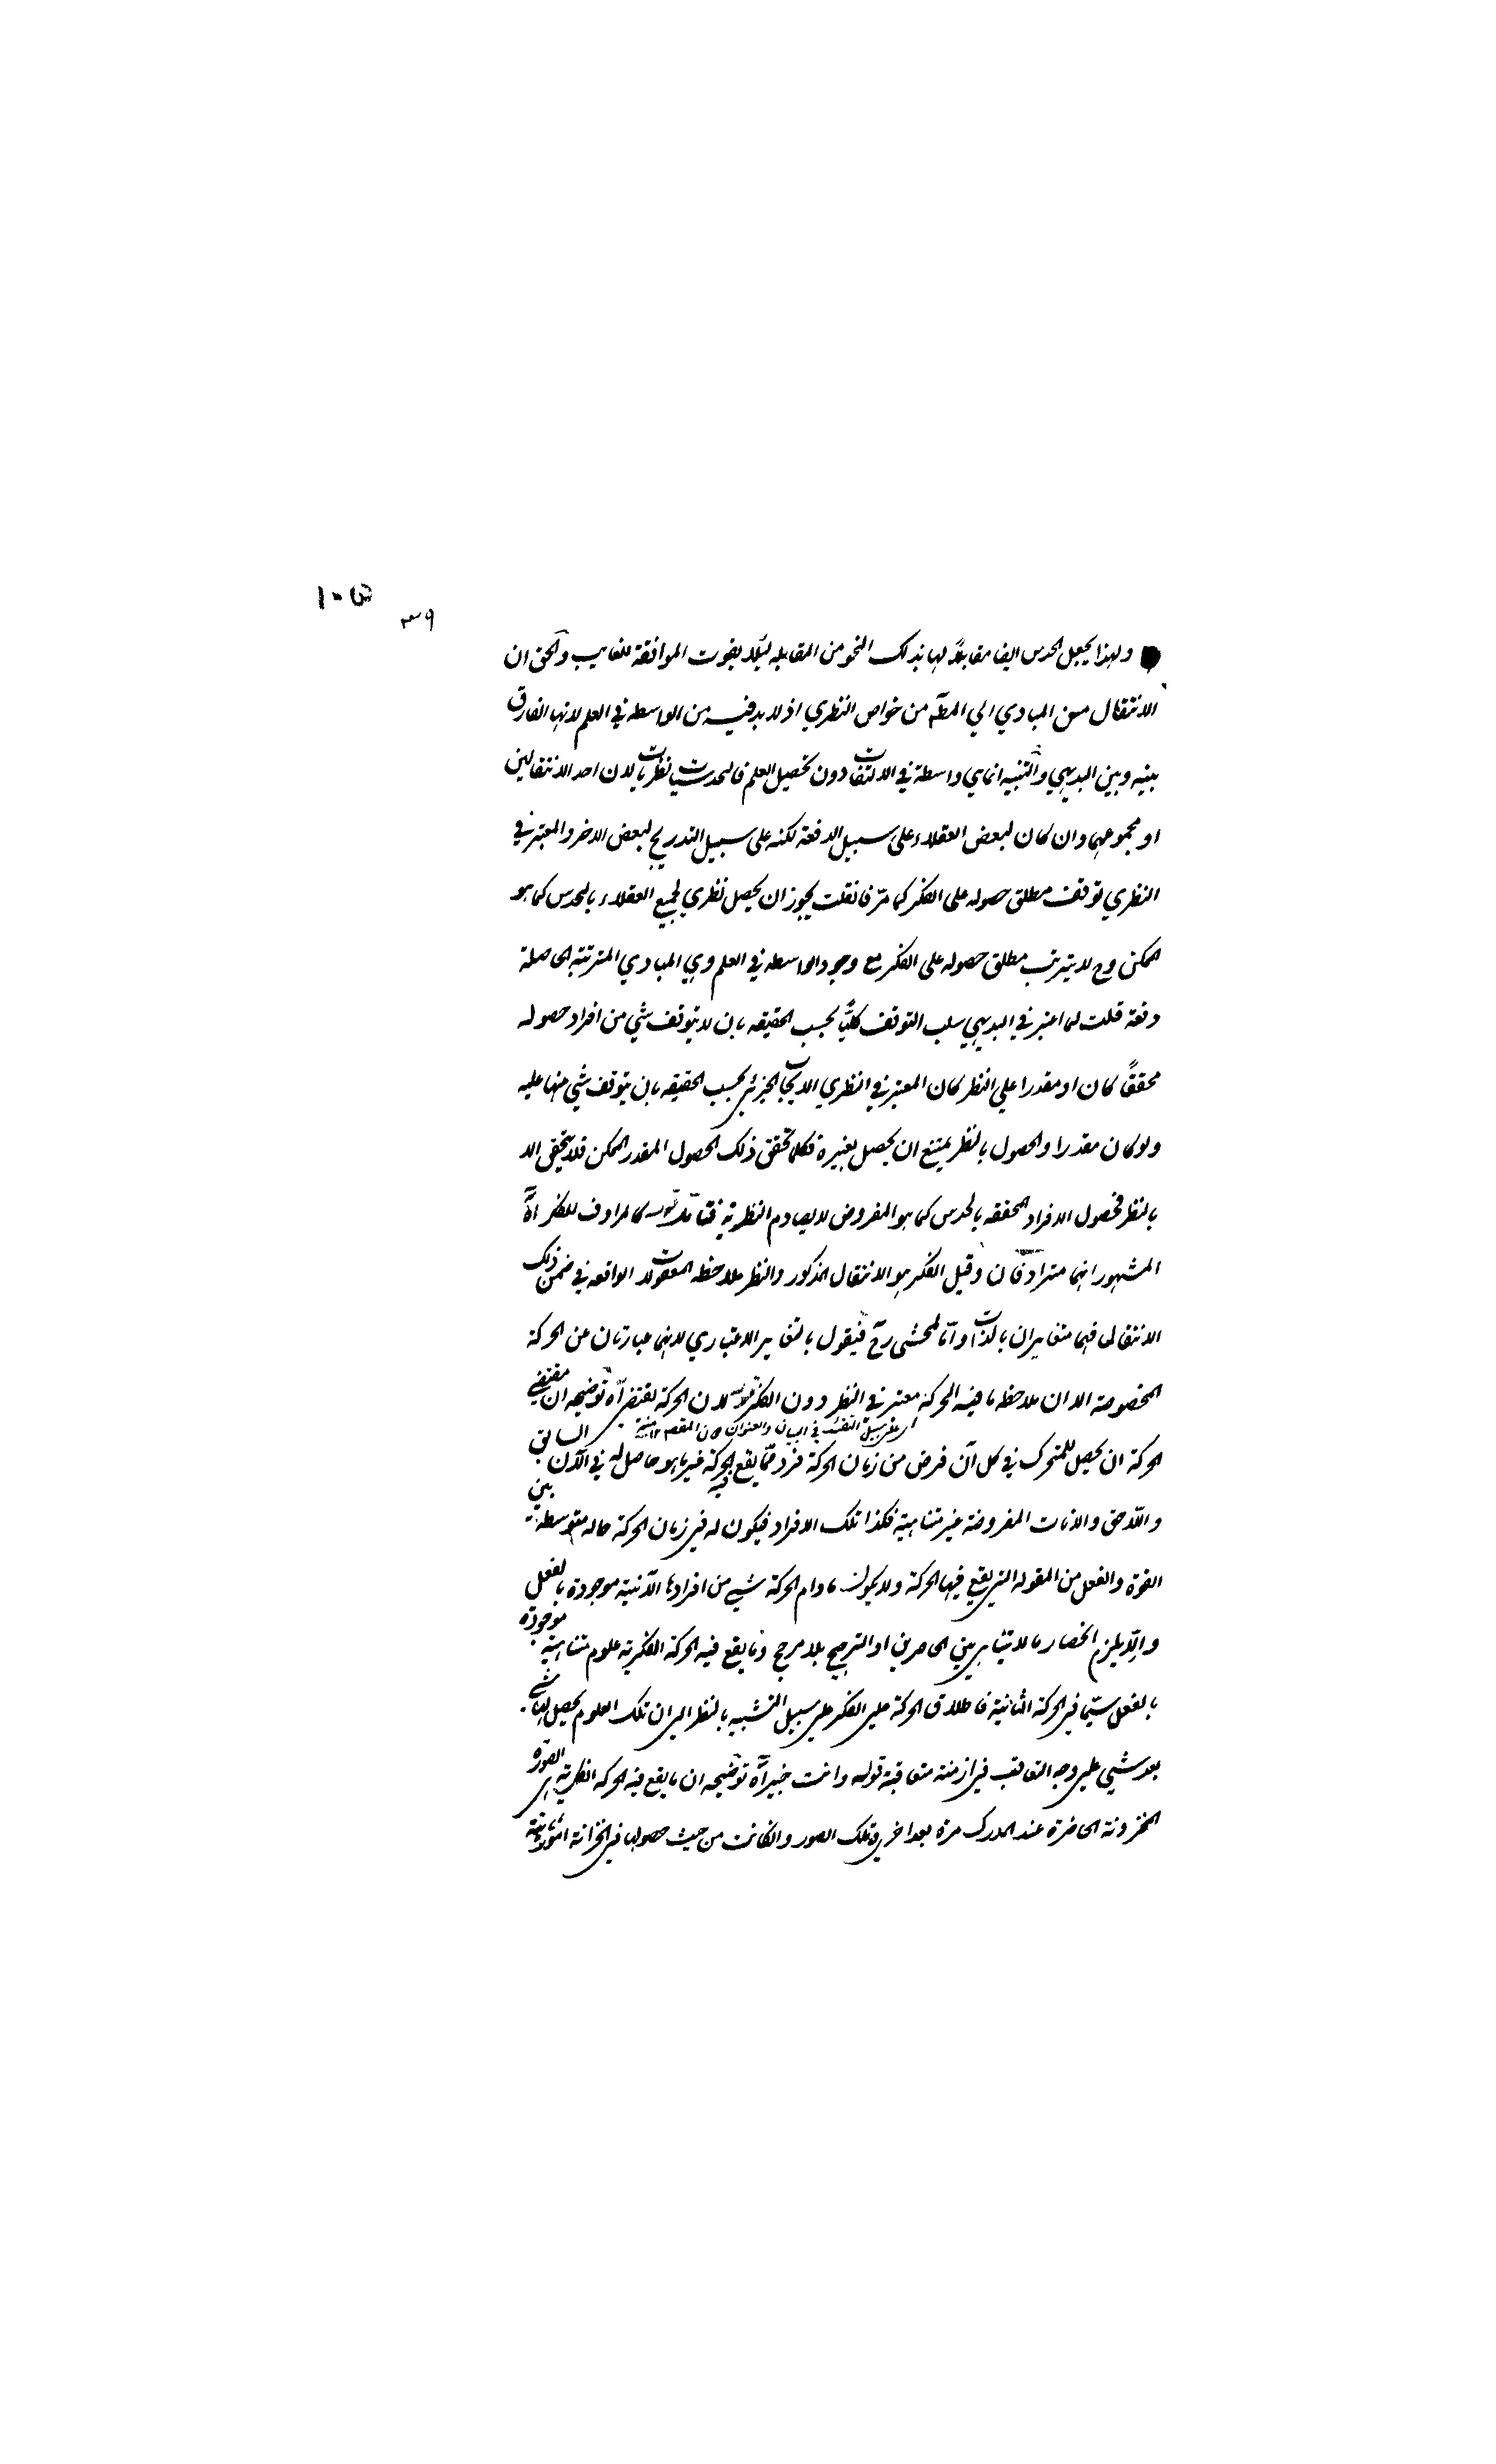 ١٠٥
٣٩
ولهذا يجعل الحدس ايضا مقابلاً لها بذلك النحو من المقابله لئلا يفوت الموافقة والحق ان
الانتقال من المبادي الي المطـ من خواص النظري اذ لا بد فيه من الواسطه في العلم لانها الفارق
بينه وبين البديهي والتنبيه انما هي واسطة في الالتفات دون تحصيل العلم فالحدسيات نظريات لان احد الانتقالين
او مجموعهما وان كان لبعض العقلاء على سبيل الدفعة لكنه على سبيل التدريج لبعض الاخر والمعتبر في
النظري توقف مطلق حصوله على الفكر كما مرّ فان قلت يجوز ان يحصل نظري لجميع العقلاء بالحدس كما هو
الممكن وح لا يترتب مطلق حصوله على الفكر مع وجود الواسطه في العلم وهي المبادي المترتبة الحاصلة
دفعة قلت لما اعتبر في البديهي سلب التوقف كليًّا بحسب الحقيقه بان لا يتوقف شي من افراد حصوله
محققًا كان او مقدرا على النظر كان المعتبر في النظري الايجاب الجزئي بحسب الحقيقه بان يتوقف شي منها عليه
ولو كان مقدرا والحصول بالنظر يمتنع ان يحصل بغيره فكلما تحقق ذلك الحصول المقدر الممكن فلا يتحقق الا
بالنظر فحصول الافراد المحققه بالحدس كما هو المفروض لا يصادم النظرية فتأمل قوله كالمرادف للفكر اهـ
المشهور انهما مترادفان وقيل الفكر هو الانتقال المذكور والنظر ملاحظه المعقولات الواقعه في ضمن ذلك
الانتقال فهما متغايران بالذات واما المحشي رح فيقول بالتغاير الاعتباري لانهما عبارتان عن الحركة
المخصوصة الا ان ملاحظه ما فيه الحركة معتبر في النظر دون الفكر قوله لان الحركة تقتضي اه توضيحه ان مقتضى
اي على سبيل التفنن في البيان والعنوان ١٢ منه
الحركة ان يحصل للمتحرك في كل آن فرض من زمان الحركة فرد مما يقع فيه الحركة غير ما هو حاصل له في الآن السابق
واللاحق والانات المفروضة غير متناهية فكذا تلك الافراد فيكون له في زمان الحركة حاله متوسطة بين
القوة والفعل من المقوله التي يقع فيها الحركة ولا يكون ما دام الحركة شي من افرادها الآنية موجودة بالفعل
والا يلزم انحصار ما لا يتناهى بين الحاصرين او الترجيح بلا مرجح وما يقع فيه الحركة الفكرية علوم متناهية موجودة
بالفعل سيّما في الحركة الثانية فاطلاق الحركة على الفكر على سبيل التشبيه بالنظر الى ان تلك العلوم يحصل لها شي
بعد شي على وجه التعاقب في ازمنة متعاقبة قوله وانت خبير اه توضيحه ان ما يقع فيه الحركة الفكرية هي الصورة
المخزونة الحاضرة عند المدرك مرة بعد اخرى وتلك الصور وان كانت من حيث حصولها في الخزانة